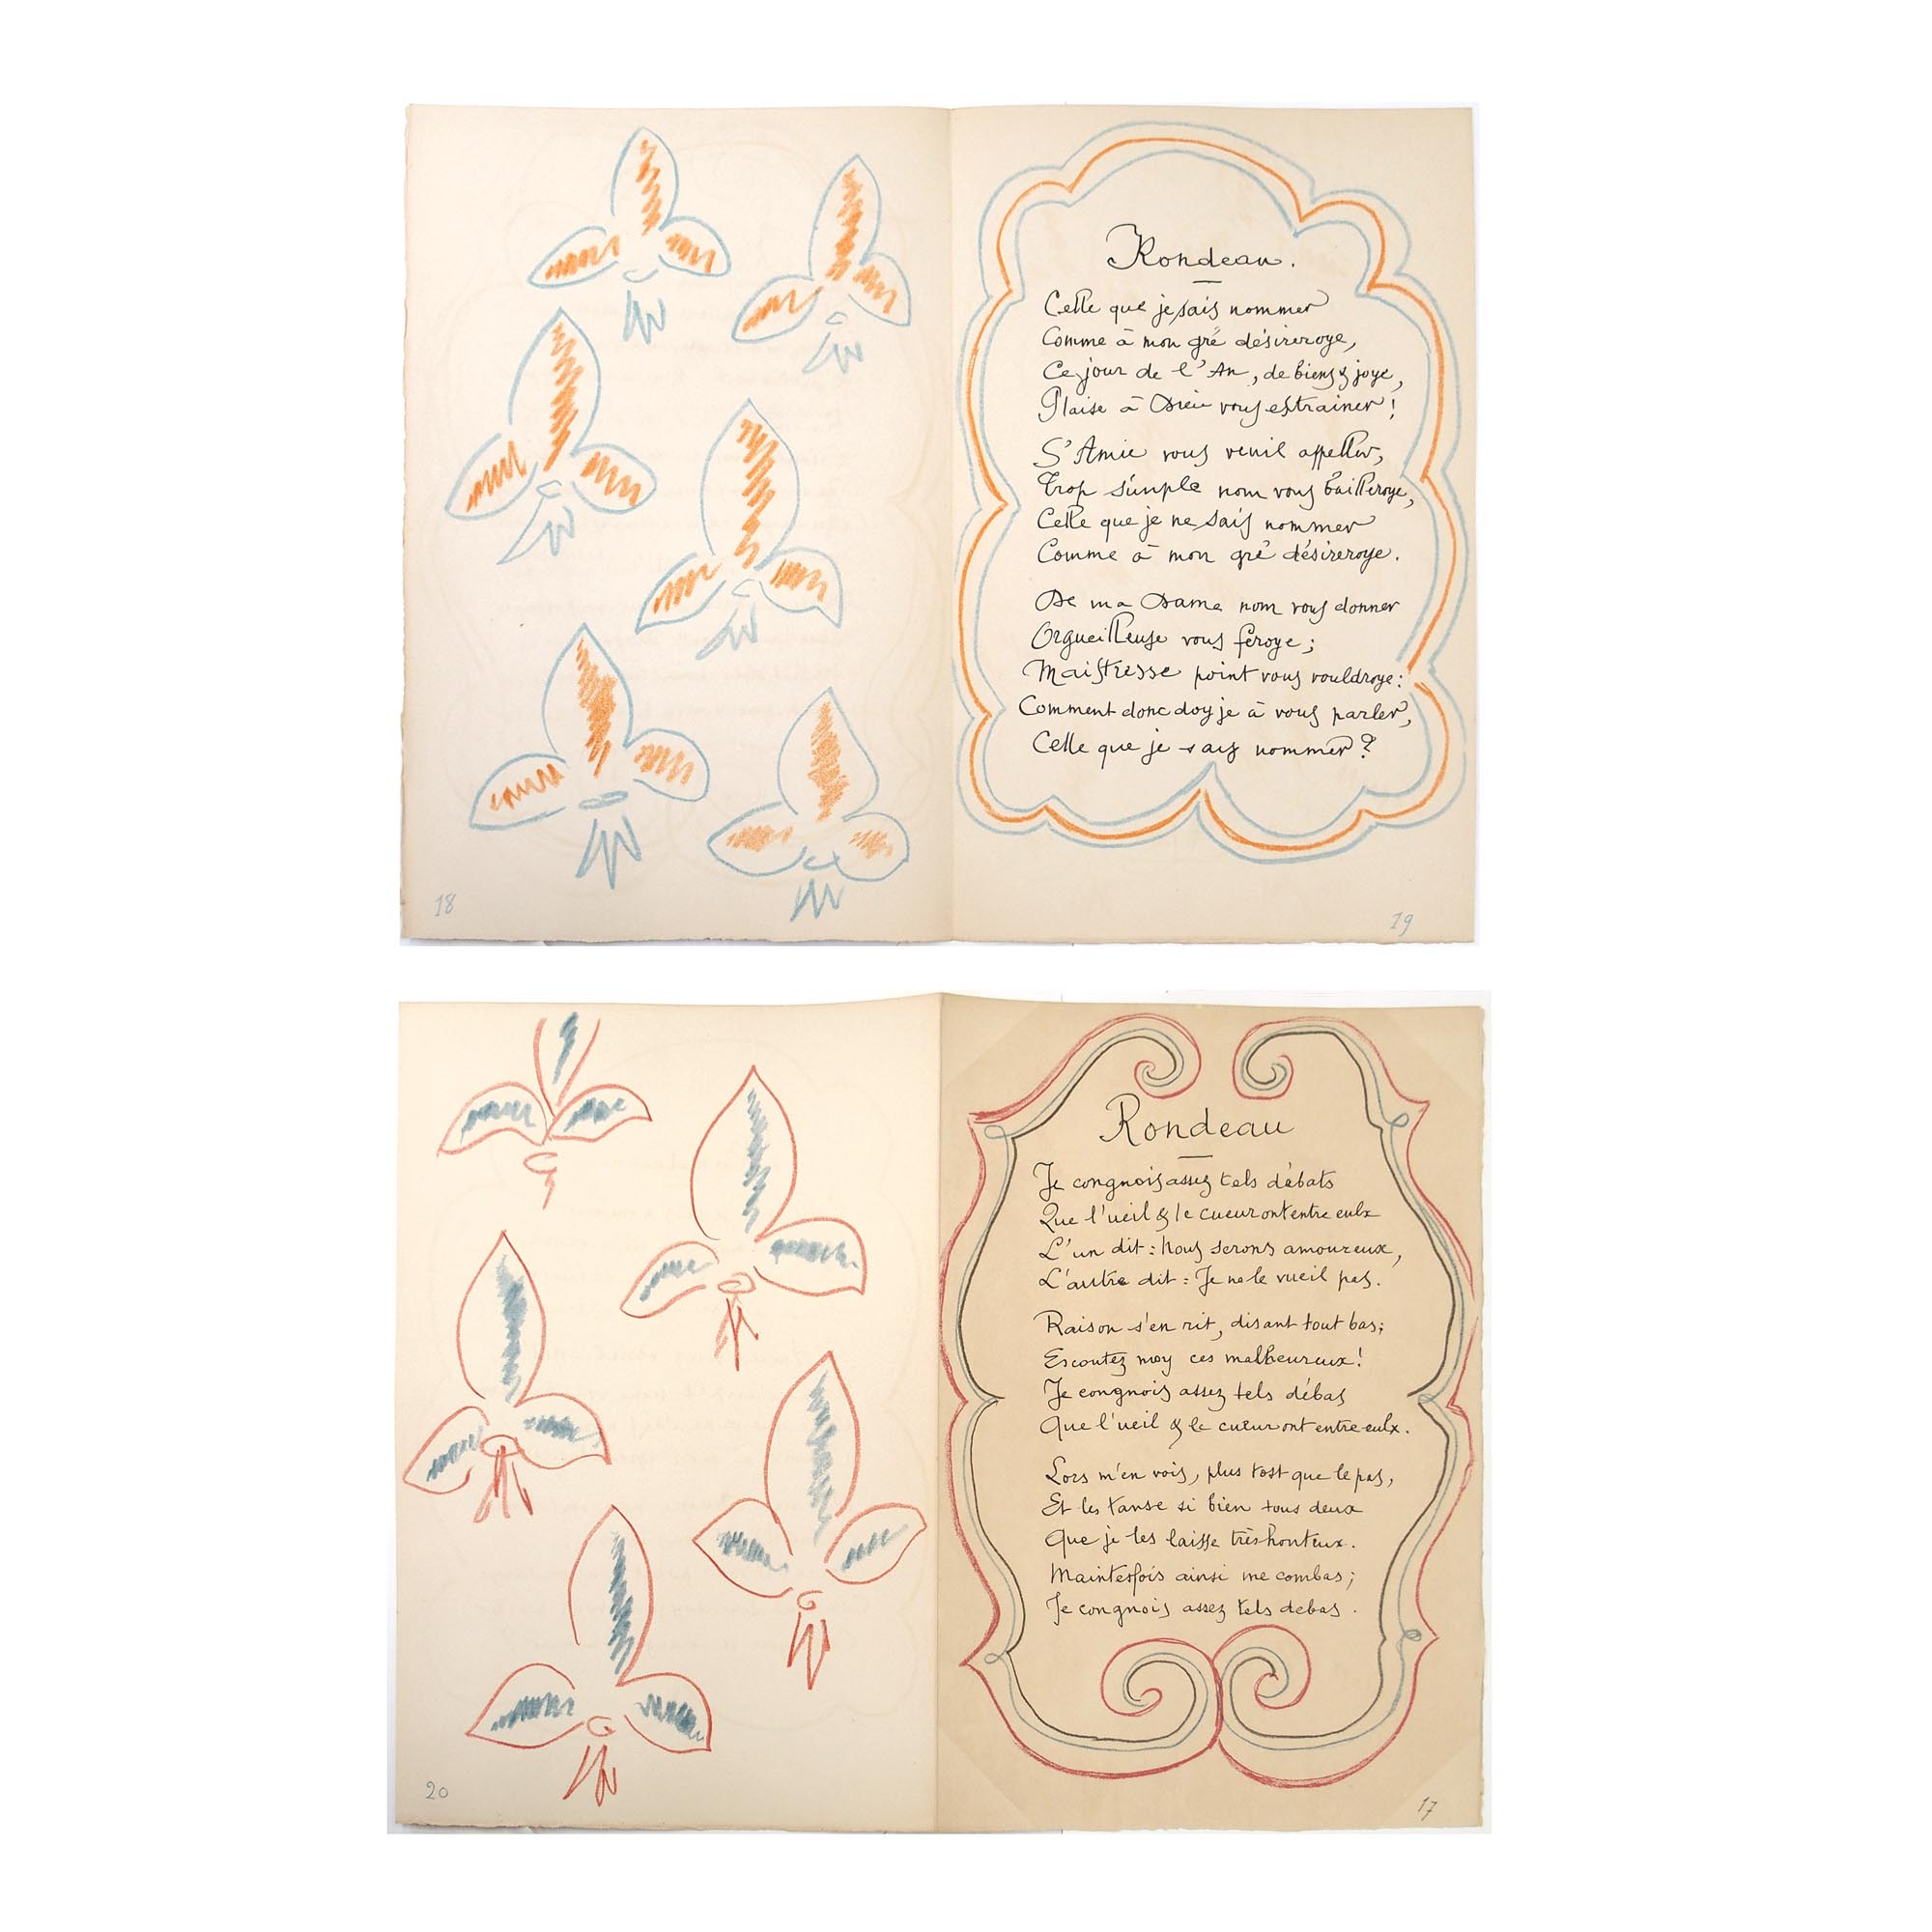 Rondeau.
Celle que je sais nommer
Comme à mon gré désireroye,
Ce jour de l'An, de biens & joye,
Plaise à Dieu vous estrainer !
S'Amie vous veuil appeller,
Trop simple nom vous bailleroye,
Celle que je ne sais nommer
Comme à mon gré désireroye.
De ma Dame nom vous donner
Orgueilleuse vous feroye ;
Maistresse point vous vouldroye :
Comment donc doy je à vous parler,
Celle que je say nommer ?
18
19
Rondeau
Je congnois assez tels débats
Que l'ueil & le cueur ont entre eulx
L'un dit : Nous serons amoureux,
L'autre dit : Je ne le vueil pas.
Raison s'en rit, disant tout bas ;
Escoutez moy ces malheureux !
Je congnois assez tels débas
Que l'ueil & le cueur ont entre eulx.
Lors m'en vois, plus tost que le pas,
Et les tanse si bien tous deux
Que je les laisse très honteux.
Maintesfois ainsi me combas ;
Je congnois assez tels debas .
20
17